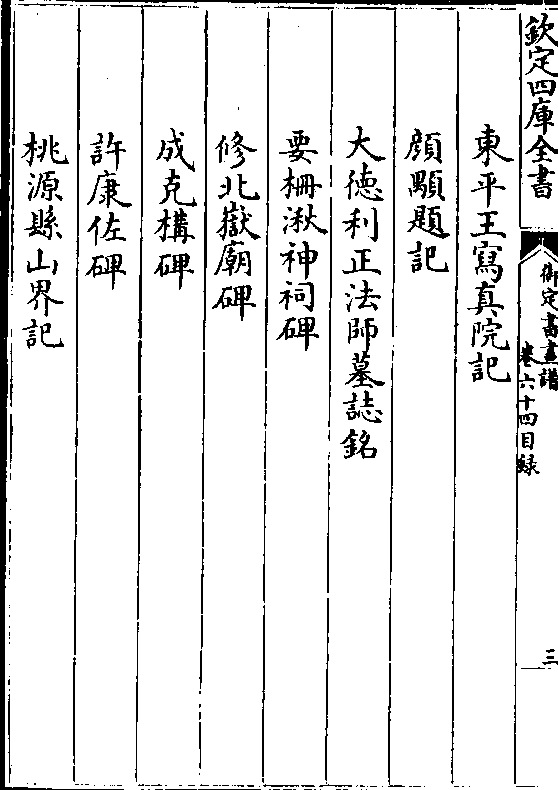 欽定四庫全書
御定書畫譜
卷六十四目録
三
東平王寫真院記
顔顒題記
大德利正法師墓誌銘
要柵湫神祠碑
修北嶽廟碑
成克構碑
許康佐碑
桃源縣山界記